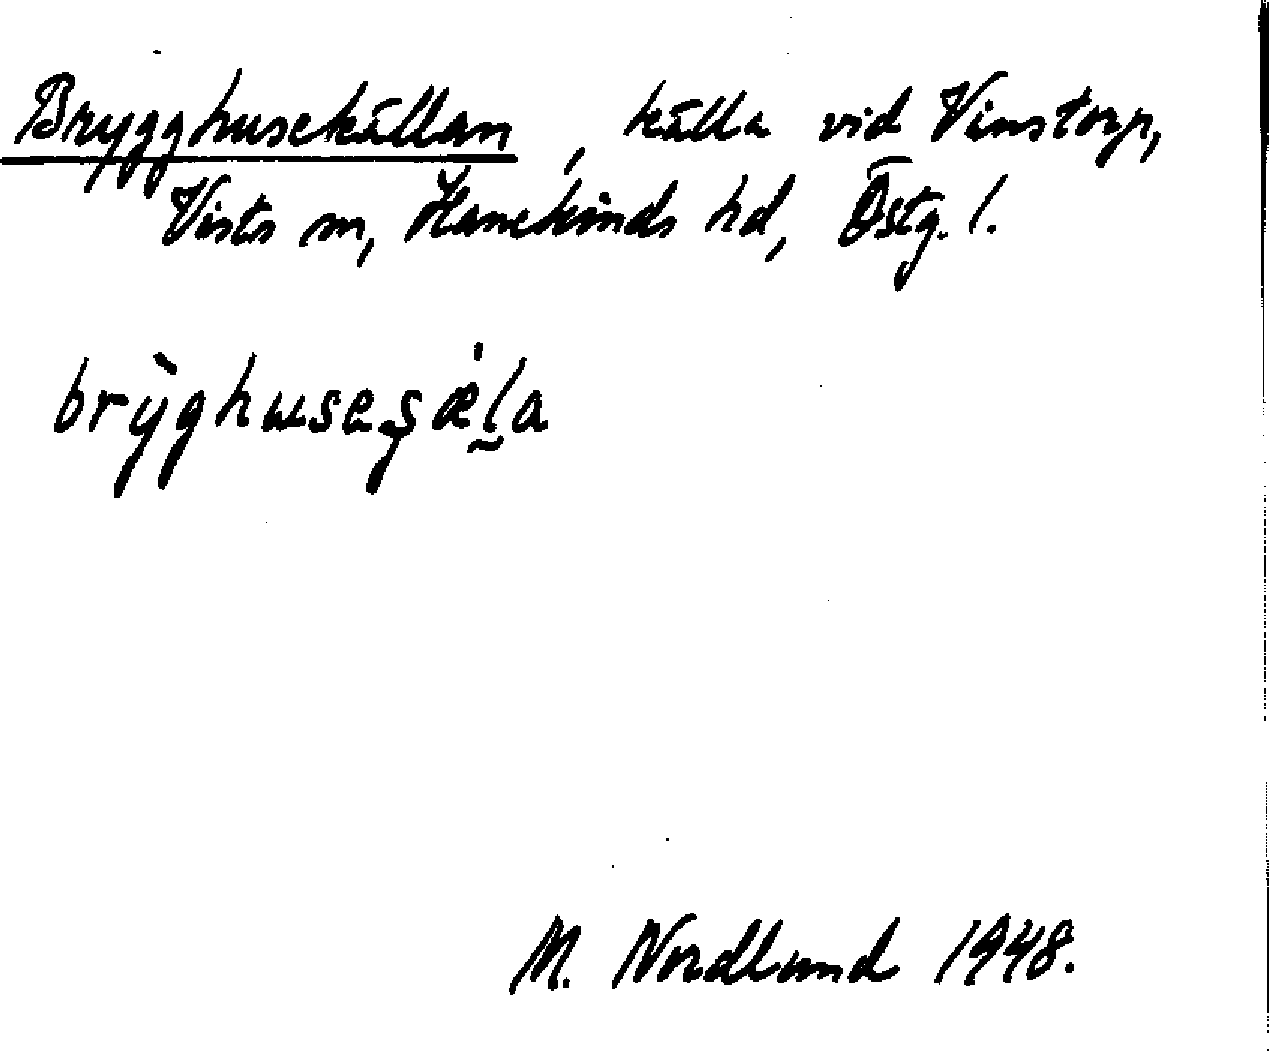 Brygghusekällan, källa vid Vinstorp,
Vists sn, Hanekinds hd, Östg. l.
brỳghusesæ̍l̰a
M. Nordlund 1948.